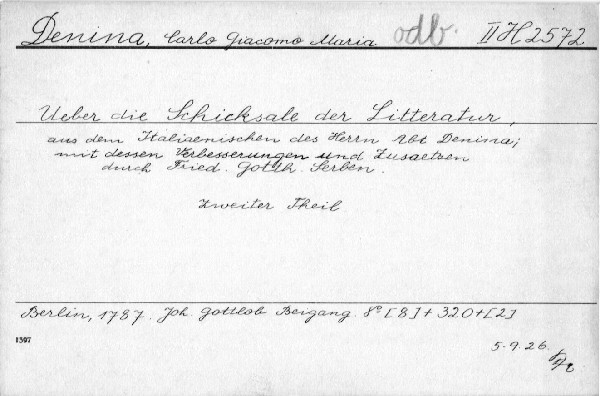 Denina, Carlo Giacomo Maria odb. II H 2572
Ueber die Schicksale der Litteratur,
aus dem Italiaenischen des Herrn Abt Denina;
mit dessen Verbesserungen und Zusaetsen
durch Fried. Gotth. Serben.
Zweiter Theil
Berlin, 1787. Joh. Gottlob Beigang. 8° [8] + 320 + [2]
1307
5.9.26.